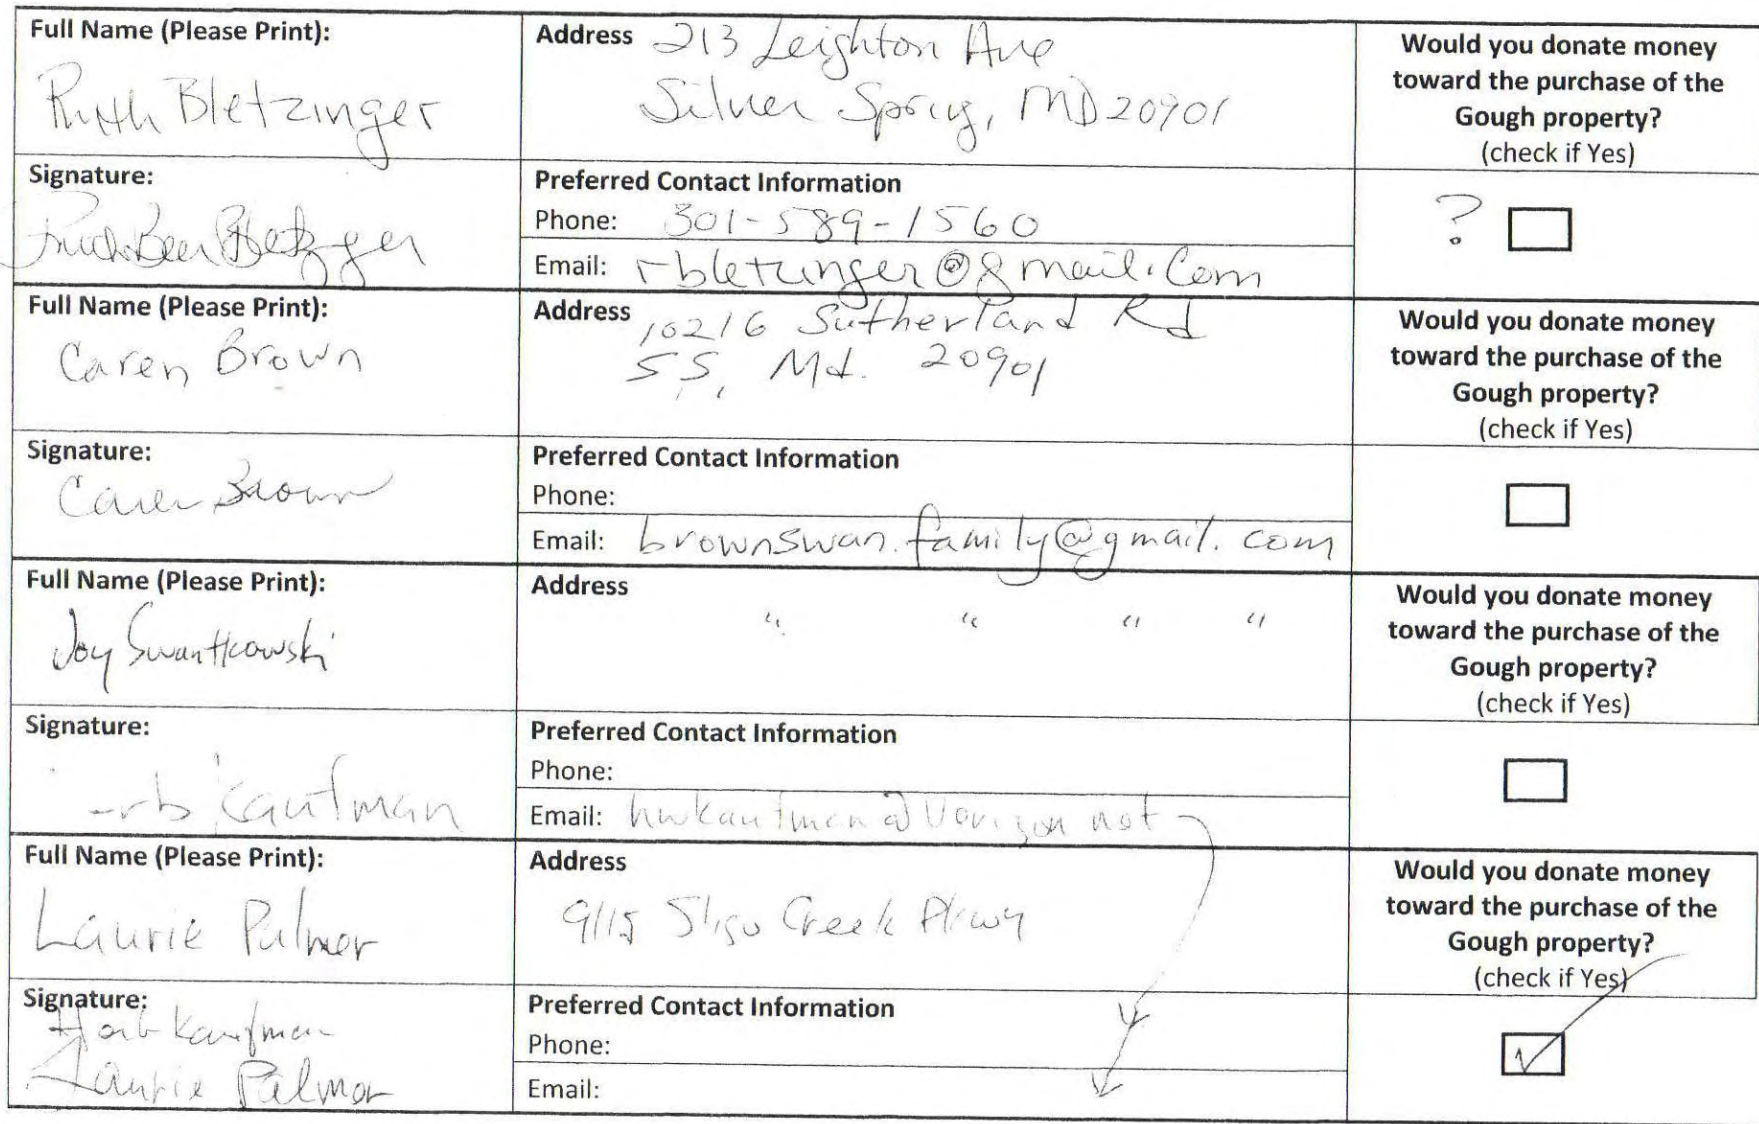 Full Name (Please Print):
Ruth Bletzinger
Address 213 Leighton Ave
Silver Spring, MD 20901
Would you donate money
toward the purchase of the
Gough property?
(check if Yes)
Signature:
Bletzinger
Preferred Contact Information
Phone: 301-589-1560
Email: rbletzinger@gmail.com
?
Full Name (Please Print):
Caren Brown
Address 10216 Sutherland Rd
S.S, Md. 20901
Would you donate money
toward the purchase of the
Gough property?
(check if Yes)
Signature:
Caren Brown
Preferred Contact Information
Phone:
Email: brownswan.family@gmail.com
Full Name (Please Print):
Joy Swantkowski
Address
" " " "
Would you donate money
toward the purchase of the
Gough property?
(check if Yes)
Signature:
Kaufman
Preferred Contact Information
Phone:
Email: hwkaufman@verizon net
Full Name (Please Print):
Laurie Palmer
Address
9115 Sligo Creek Pkwy
Would you donate money
toward the purchase of the
Gough property?
(check if Yes)
Signature:
Herb Kaufman
Laurie Palmer
Preferred Contact Information
Phone:
Email: